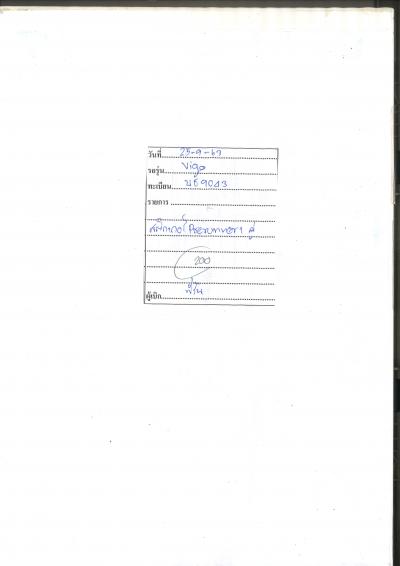 วันที่ 25-9-67
รถรุ่น Vigo
ทะเบียน บธ 9043
รายการ
สติกเกอร์ 1 คู่
200
ผู้เบิก